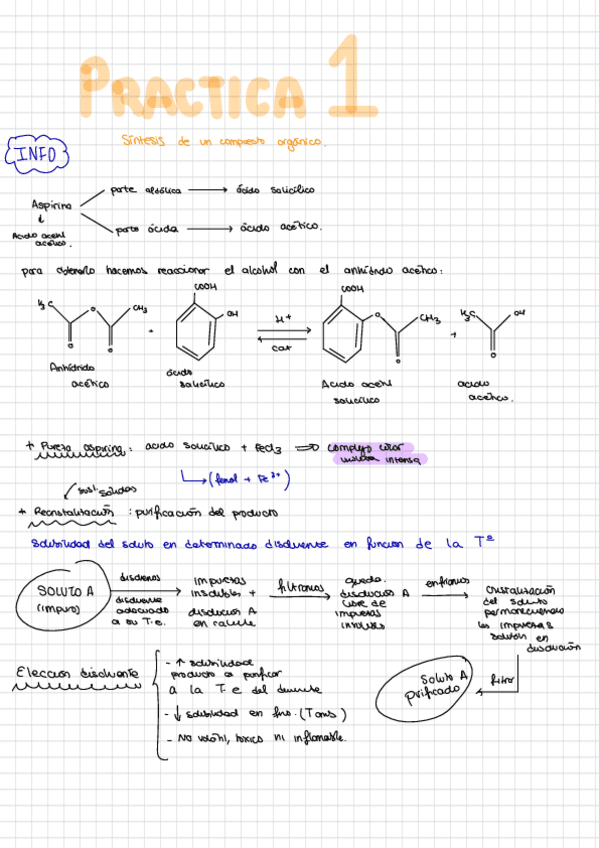 PRACTICA 1
Síntesis de un compuesto orgánico.
INFO
Aspirina
parte alcohólica → ácido salicílico
parte ácida → ácido acético.
Acido acetil
para obtenerlo hacemos reaccionar el alcohol con el anhídrido acético:
H₃C O CH₃ O O
+
COOH
OH
H+
cat
COOH
O CH₃ O
+
H₃C OH O
Anhídrido
acético
ácido
salicílico
Acido acetil
salicílico
acido
acético.
+ Pureza aspirina: acido salicílico + FeCl3 ⇒ complejo color
violeta intensa
(fenol + Fe³⁺)
sust. solidas
+ Recristalización: purificación del producto
Solubilidad del soluto en determinado disolvente en funcion de la Tª
SOLUTO A
(impuro)
disolvemos
disolvente
adecuado
a su T.e.
impurezas
insolubles +
disolucion A
en caliente
filtramos
queda.
disolucion A
libre de
impurezas
insolubles
enfriamos
Cristalización
del soluto
permaneciendo
las impurezas
solubles en
disolución
filtrar
Soluto A
purificado
Eleccion disolvente
- ↑ solubilidad
producto a purificar
a la T e del disolvente
- ↓ solubilidad en frio. (Tamb)
- No volátil, toxico ni inflamable.